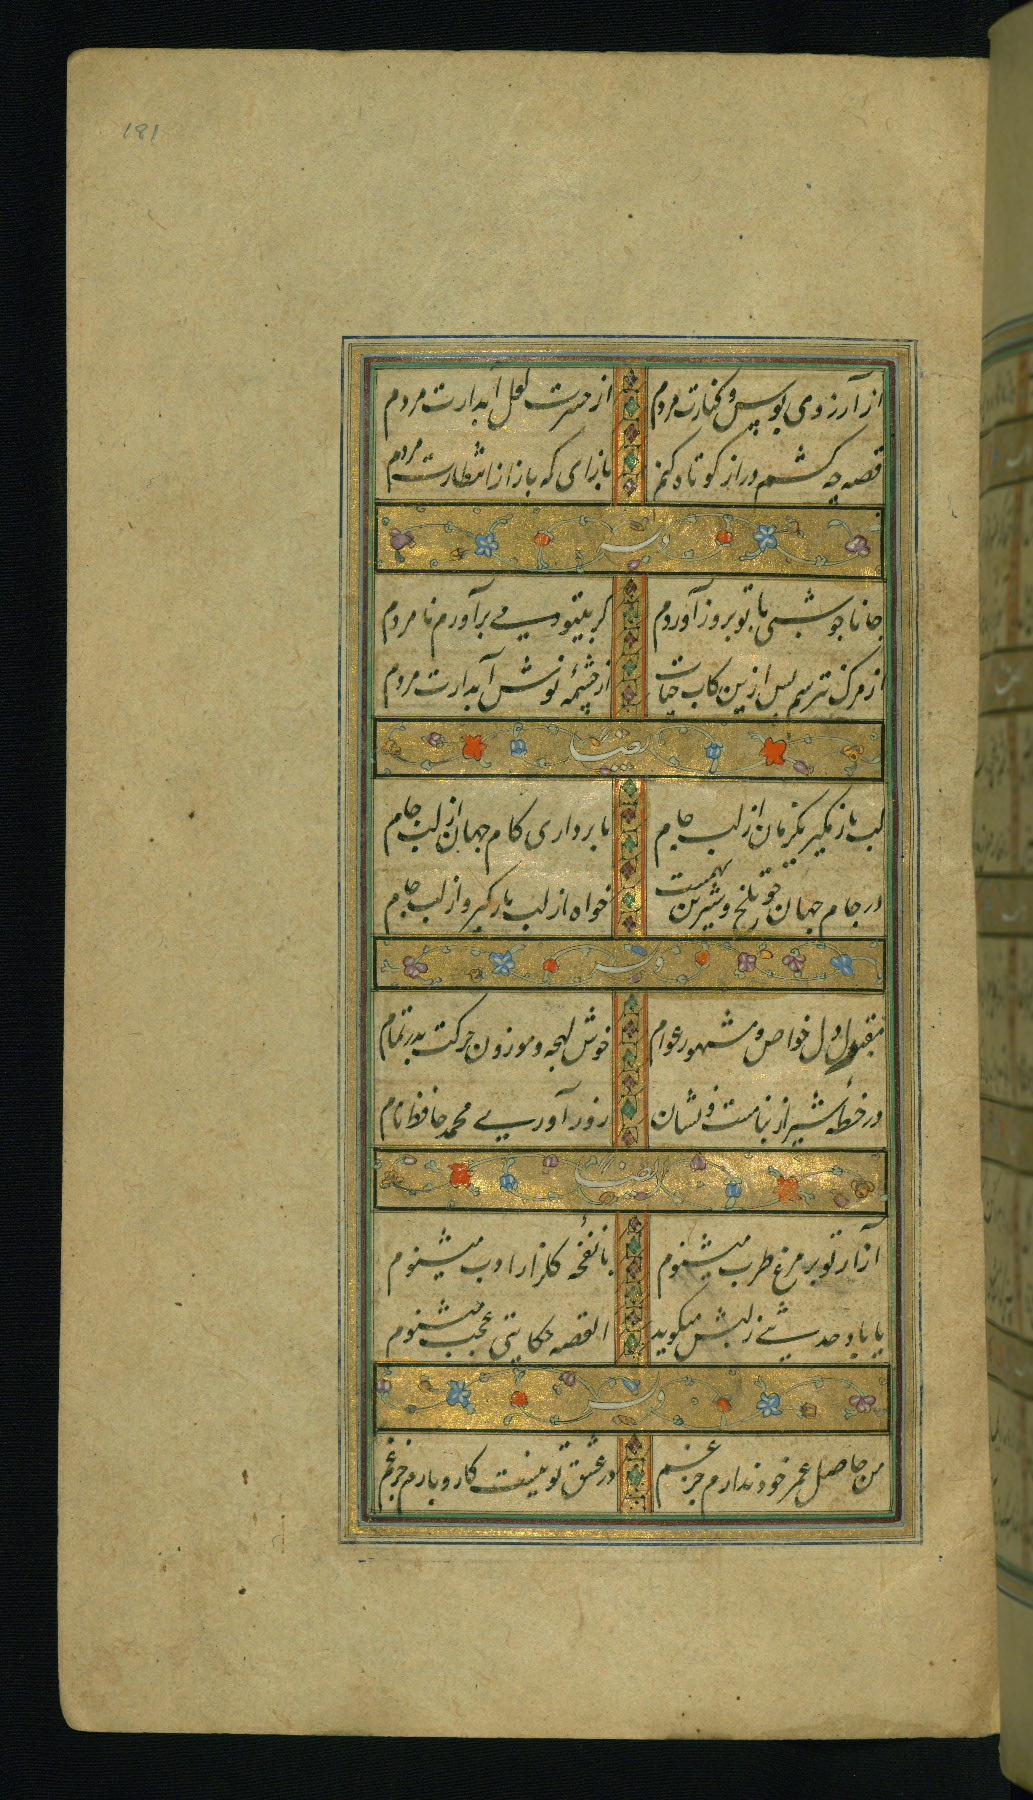 181
از آرزوی بوس و کنارت مردم از حسرت لعل آبدارت مردم
قصه چه کنم دراز کوتاه کنم بازای که باز از انتظارت مردم
وله
جانا جو شبی با تو بروز آوردم کر بیتو دمی برآورم نامردم
از مرک نترسم بس ازین کاب حیات از چشمه نوش آبدارت مردم
ایضا
لب باز مکیر یکزمان از لب جام تا برداری کام جهان از لب جام
در جام جهان جو تلخ و شیرین بهمست خواه از لب یار کیر و از لب جام
وله
مقبول دل خواص و مشهور عوام خوش لهجه و موزون حرکت بدر تمام
در خطه شیراز بنامست و نشان محمد حافظ نام
ایضا
تو بر مرغ طرب میشنوم با نفحه کلزار ادب میشنوم
با باد حدیثی ز لبش میکوید القصه حکایتی عجب میشنوم
وله
من حاصل عمر خود ندارم جز غم در عشق تو نیست کار و بارم جز غم